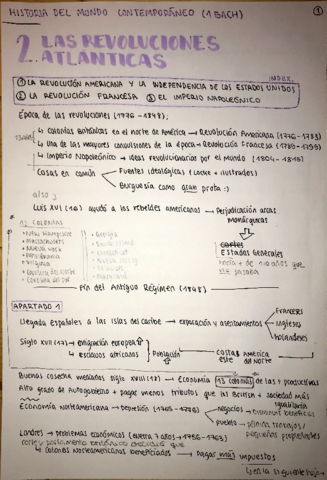 HISTORIA DEL MUNDO CONTEMPORÁNEO (1 BACH) 1
2. LAS REVOLUCIONES
ATLÁNTICAS
ÍNDEX.
1 LA REVOLUCIÓN AMERICANA Y LA INDEPENDENCIA DE LOS ESTADOS UNIDOS
2 LA REVOLUCIÓN FRANCESA 3 EL IMPERIO NAPOLEÓNICO
Época de las revoluciones (1776 - 1848):
colonias británicas en el norte de América → Revolución Americana (1776-1783)
Una de las mayores convulsiones de la época → Revolución Francesa (1789-1799)
Imperio Napoleónico → ideas revolucionarias por el mundo (1804-1815)
Cosas en común
Fuentes ideológicas (Locke + ilustrados)
Burguesía como gran prota :)
Luis XVI (16) ayudó a los rebeldes americanos → Perjudicación arcas
monárquicas
13 COLONIAS
Estados Generales
hacía + de 150 años que
no pasaba
• New Hampshire • Georgia
• Massachusetts
• Nueva York
• Virginia
Fin del Antiguo Régimen (1848)
APARTADO 1
Llegada españoles a las islas del caribe → exploración y asentamientos
Franceses
Ingleses
holandeses
Siglo XVII (17) → emigración europea
esclavos africanos
Población
costas América
este del Norte
Buenas cosechas mediados siglo XVIII (18) → Economía 13 colonias de las + productivas
Alto grado de autogobierno + pagar menos tributos que los British + sociedad más
igualitaria
Economía Norteamericana → Depresión (1765-1770)
Negocios →
pueblo →
pequeños propietarios
Londres → problemas económicos (Guerra 7 años → 1756-1763)
corte y parlamento británico que
colonos Norteamericanos beneficiados → Pagar más impuestos